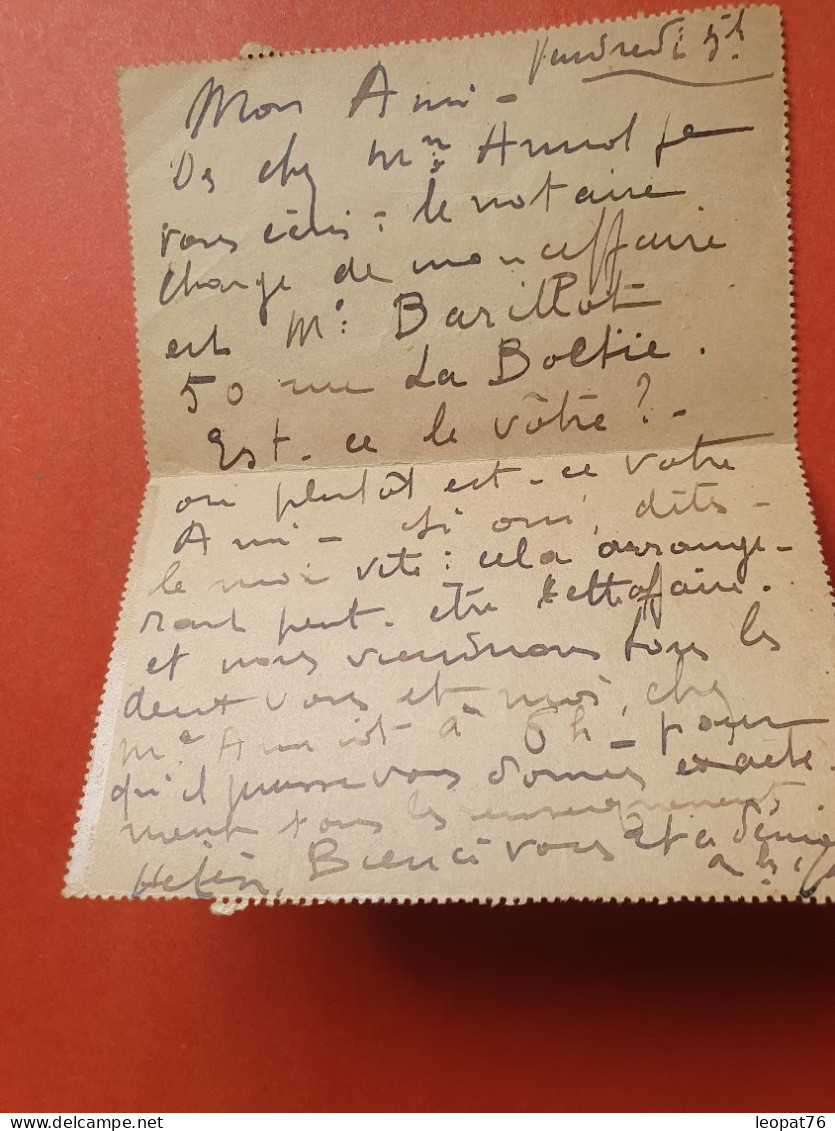 Vendredi 5h
Mon Ami -
De chez Mr Amiot je
vous écris : le notaire
chargé de mon affaire
est Me Barillot
50 rue La Boëtie.
Est-ce le vôtre ? -
ou plutôt est-ce votre
Ami - si oui, dites-
le moi vite : cela arrange-
rait peut-être cette affaire.
et nous viendrons tous les
deux vous et moi, chez
Me Amiot à 6h - pour
qu'il puisse vous donner exacte-
ment tous les renseignements
Bien à vous et à
leopat76